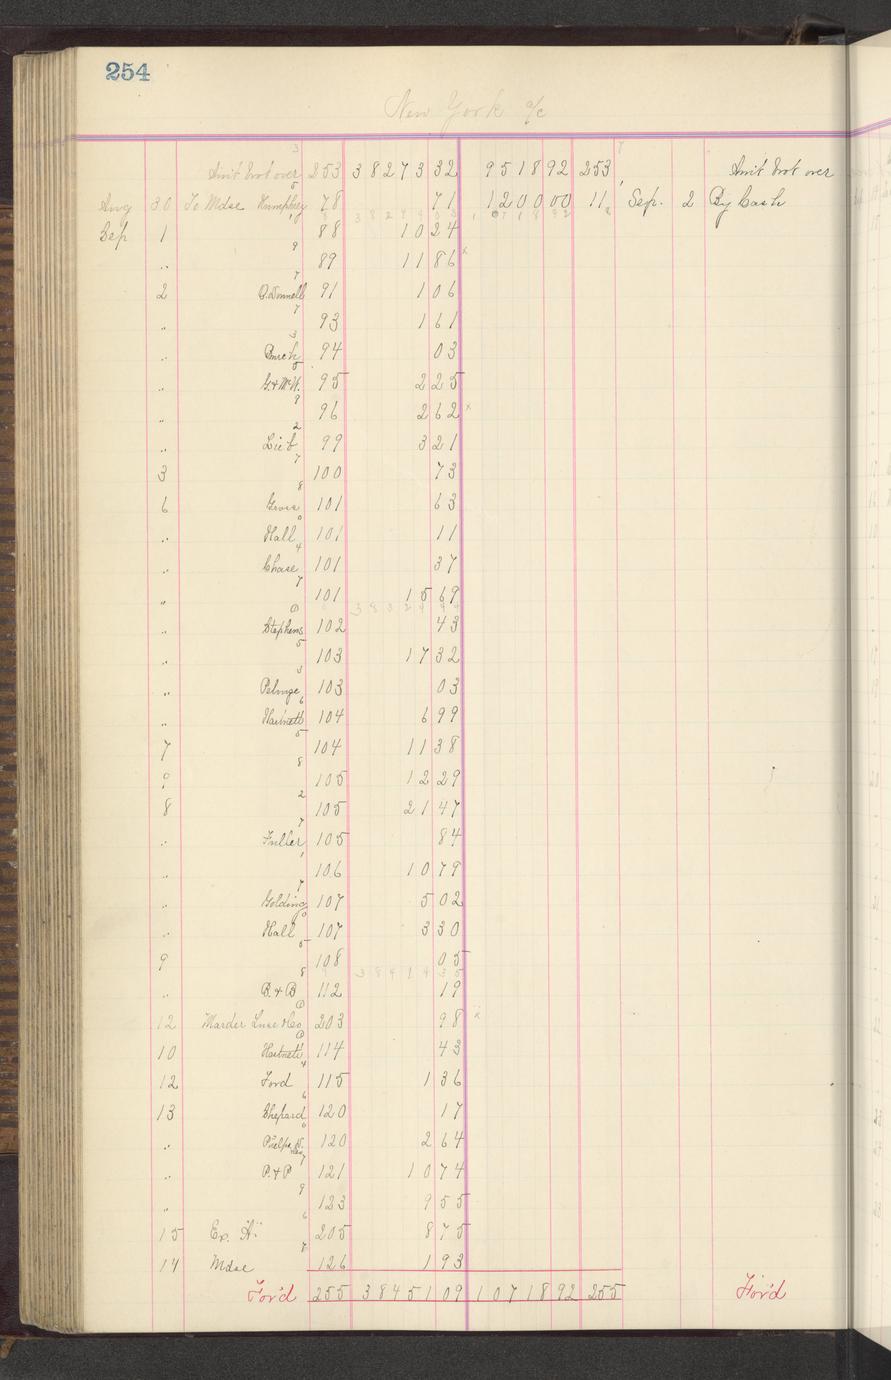 254
New York a/c
Am't brot over 253 38273 32 9518 92 253 Am't brot over
Aug 30 To Mdse Humphrey 78 71 1200 00 11 Sep. 2 By Cash
Sep 1 88 10 24
" 89 11 86 x
2 O'Donnell 91 1 06
" 93 1 61
" Burch 94 03
" G. & McW. 95 2 25
" 96 2 62 x
" Lieb 99 3 21
3 100 73
6 Gross 101 63
" Hall 101 11
" Chase 101 37
" 101 15 69
" Stephens 102 43
" 103 17 32
" 103 03
" Hartnett 104 6 99
7 104 11 38
9 105 12 29
8 105 21 47
" Fuller 105 84
" 106 10 79
" Golding 107 5 02
" Hall 107 3 30
9 108 05
" B. & B 112 19
12 Marder Luse & Co 203 98 x
10 Hartnett 114 43
12 Ford 115 1 36
13 Shepard 120 17
" Phelps 120 2 64
" P. & P 121 10 74
" 123 9 55
15 Ex. 205 8 75
14 Mdse 126 1 93
For'd 255 38451 09 10718 92 255 For'd